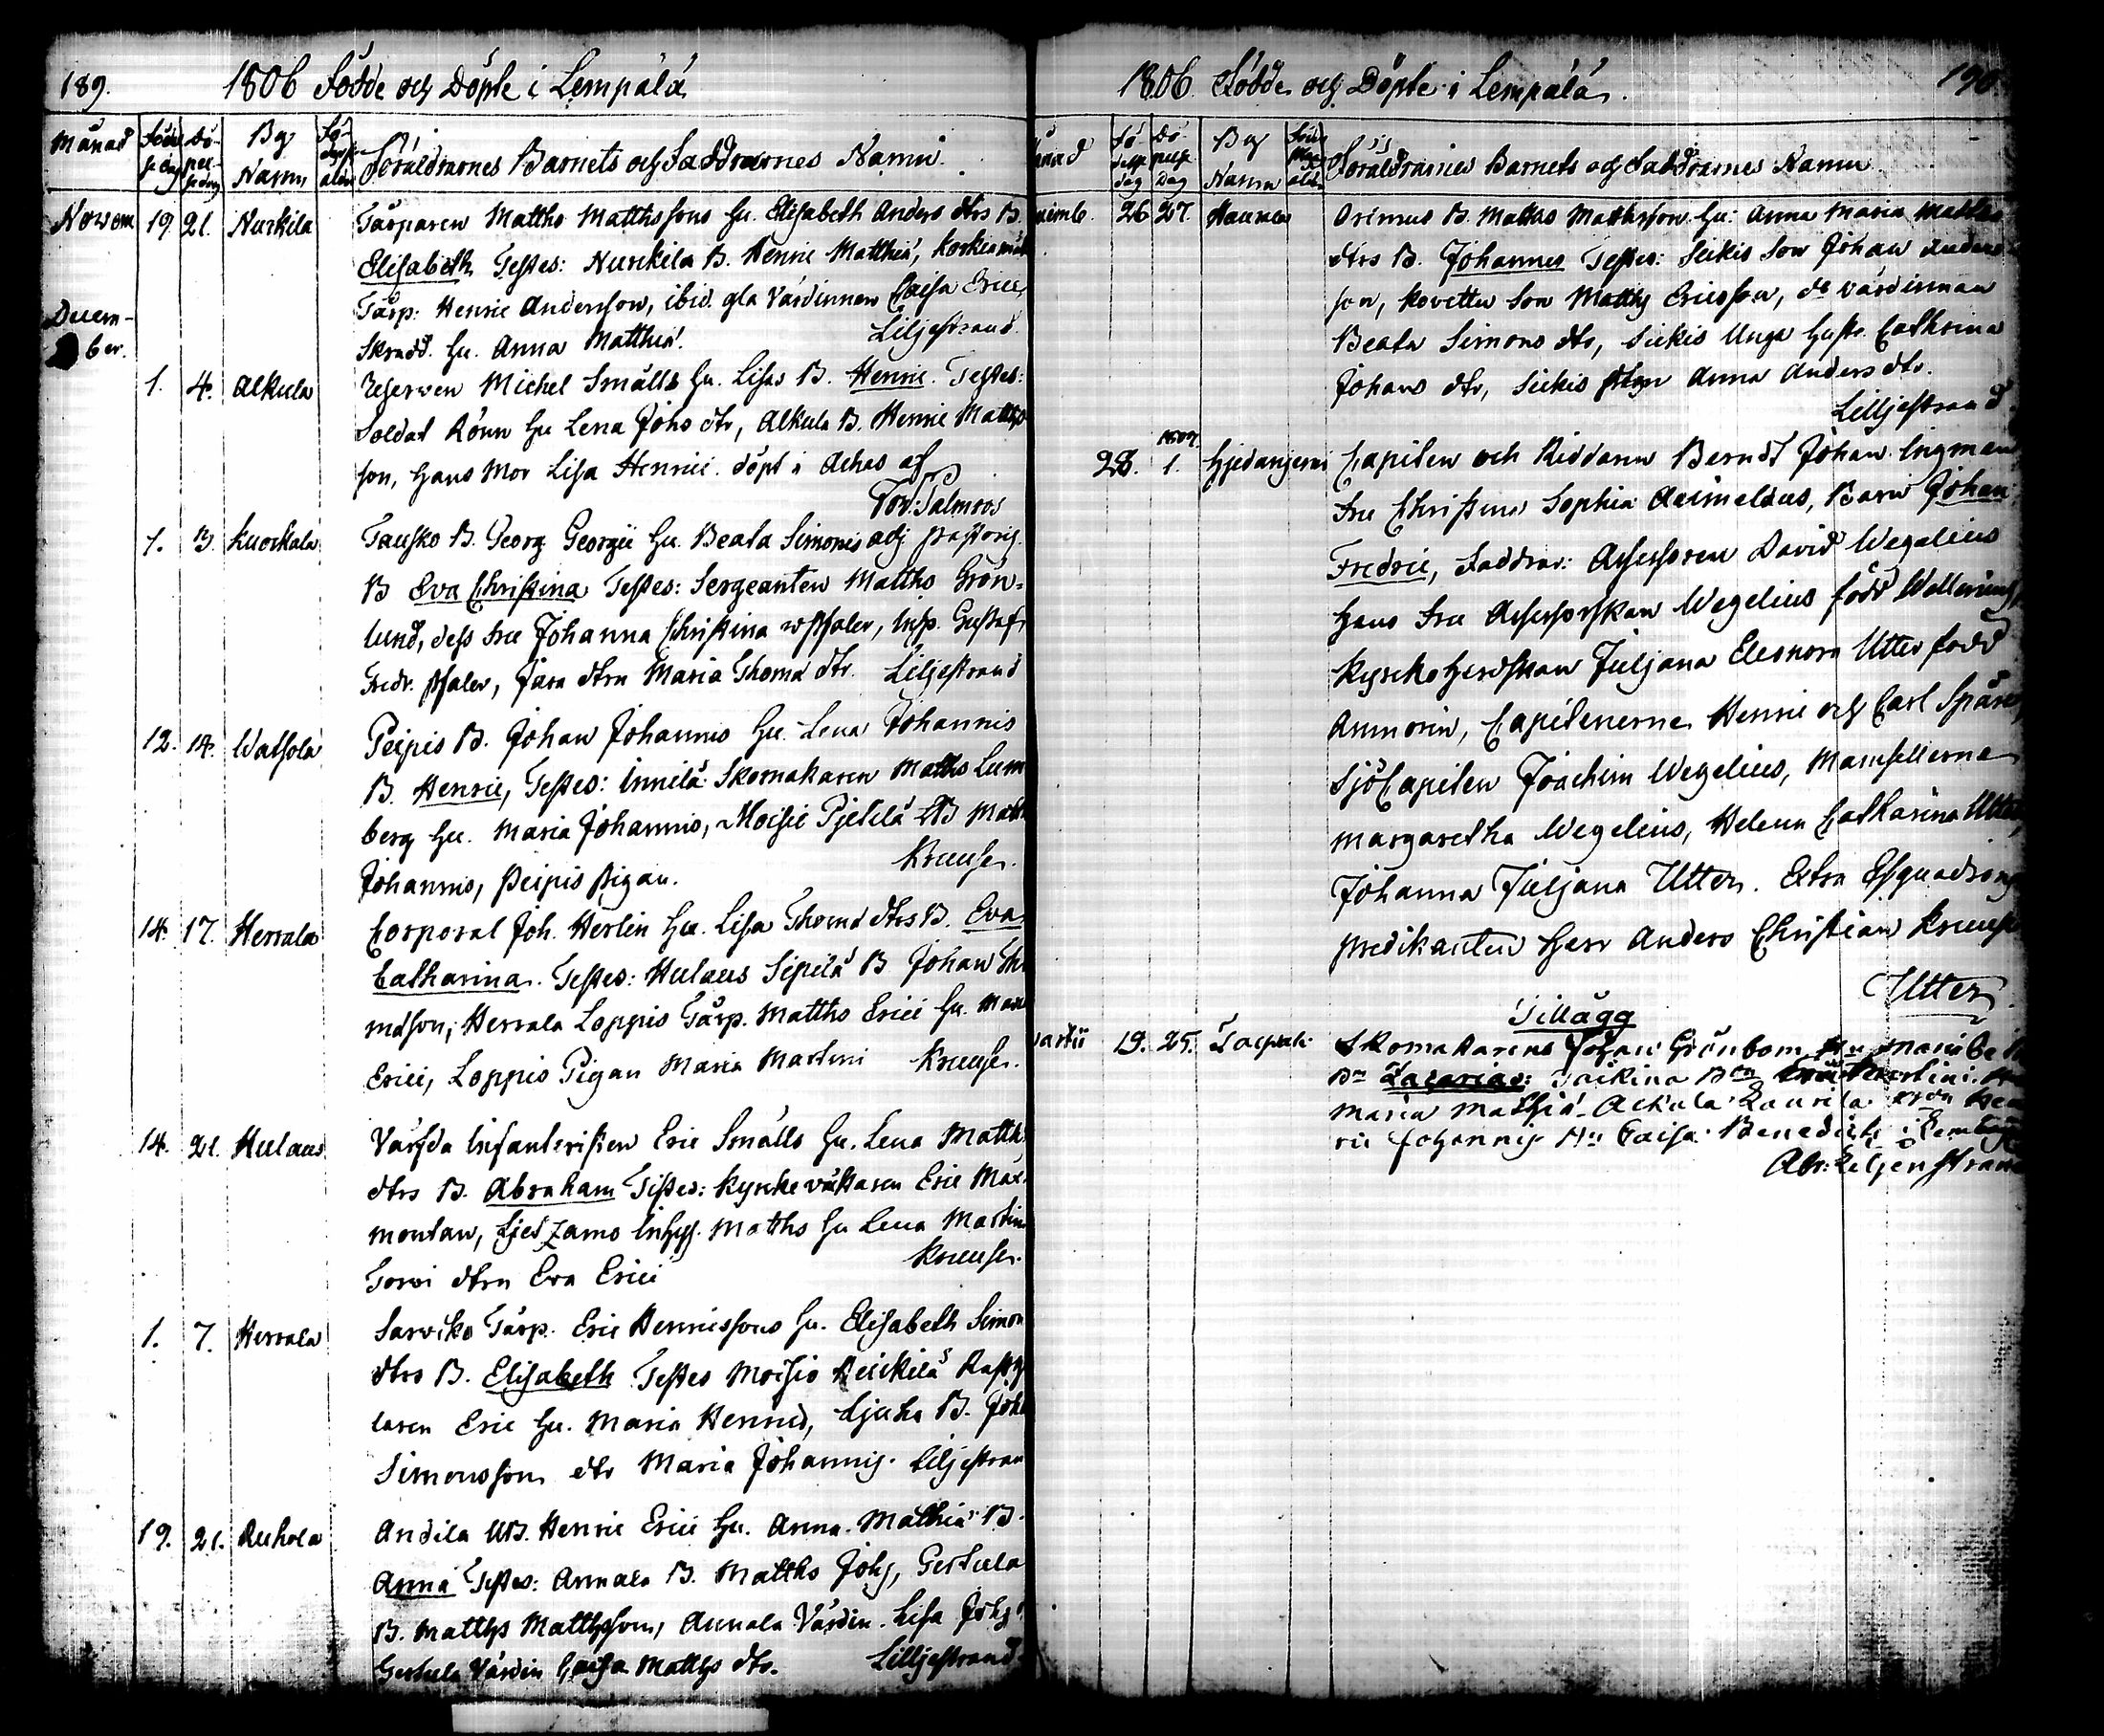 189. 1806 Födde och Döpte i Lempälä
Månad Födelse dag Döpelse dag By Namn Föräldrarnes Barnets och Faddrarnes Namn
Novem 19. 21. Nurkila Tårparen Matths Matthssons hu. Elisabeth Anders dtrs B.
Elisabeth Testes: Nurckila B. Henric Matthiæ,
Tårp: Henric Andersson, ibid. gla Värdinnan Caisa Erici,
Skrädd. hu. Anna Matthiæ. Liljestrand.
Decem-
ber.
1. 4. Alkula Reserven Michel Smälls hu. Lisas B. Henric. Testes:
Soldat Rönn hu Lena Johs dtr, Alkula B. Henric Matths
son, hans Mor Lisa Henrici. döpt i Achas af
Tob: Salmros
1. 3. Kuockala Tausko B. Georg Georgii hu. Beata Simonis adj pastoris.
B Eva Christina Testes: Sergeanten Matths Grön-
lund, dess fru Johanna Christina Psaler, Insp. Gustaf
Fredr. Psaler, Jara dtrn Maria Thomæ dtr. Liljestrand
12. 14. Watsola Peipis B. Johan Johannis hu. Lena Johannis
B. Henric, Testes: Innilä Skomakaren Matths Lum
berg hu. Maria Johannis, Moisie Pjetilä B Matth
Johannis, Peipis Pigan. Kreuser.
14. 17. Herrala Corporal Joh. Herlin hu. Lisa Thomæ dtrs B. Eva
Catharina. Testes: Hulaus Sipilä B Johan Tho
mæson, Herrala Loppis Tårp. Matths Erici hu. Maria
Erici, Loppis Pigan Maria Martini Kreuser.
14. 21. Hulaus Värfda Infanteristen Eric Smälls hu. Lena Matth
dtrs B. Abraham Testes: Kyrckeväktaren Eric Mar
montan, Inhys. Matths hu Lena Martini
Kreuser.
Torvi dtrn Eva Erici
1. 7. Herrala Sarvika Tårp. Eric Henricssons hu. Elisabeth Simon
dtrs B. Elisabeth Testes Moisio Heickilä Rustg
laren Eric hu. Maria Henrics, Ljuha B. Joh
Simonsson dtr Maria Johannis. Liljestran
19. 21. Kuhola Andila UB. Henric Erici hu. Anna Mathiæ B.
Anna Testes: Annala B. Matths Johs, Gertula
B. Matths Matthsson, Annala Värdin. Lisa Johs
Gertula Värdin Caisa Matths dtr. Lilljestrand
1806. Födde och Döpte i Lempälä. 190.
Månad Födelse dag Döpelse Dag By Namn Föräldrarnes Barnets och Faddrarnes Namn
cemb. 26 27. Orimus B. Mathias Mathsson hu: Anna Maria Mathiæ
dtrs B. Johannes Testes: Sickis Son Johan Anders
son, Kovettu Son Matths Ericsson, do värdinnan
Beata Simons dtr, Sickis Unga hustr. Cathrina
Johans dtr, Sickis Pigan Anna Anders dtr.
Lilljestrand
1807.
28. 1. Capiten och Riddaren Berndt Johan Ingman
fru Christina Sophia Aeimelæus, Barn Johan
Fredric, Faddrar: Assessoren David Wegelius
hans fru Assessorskan Wegelius född Wallerius,
Kyrckoherdskan Juljana Eleonora Utter född
Amnorin, Capitenerne Henric och Carl Spåre,
SjöCapiten Joachim Wegelius, Mamsellerna
Margaretha Wegelius, Helena Catharina Utter,
Johanna Juljana Utter. Extra Esquadrons
predikanten Herr Anders Christian Kreuser
Utter.
Tillägg
artii 19. 25. Skomakarens Johan Grönbom hu Maria
Bn Zacarias: Bn Martini.
Maria Mathiæ. Ackula Laurila
ric Johannis Hu Caisa Benedicti i Lembois
Abr: Liljenstrand